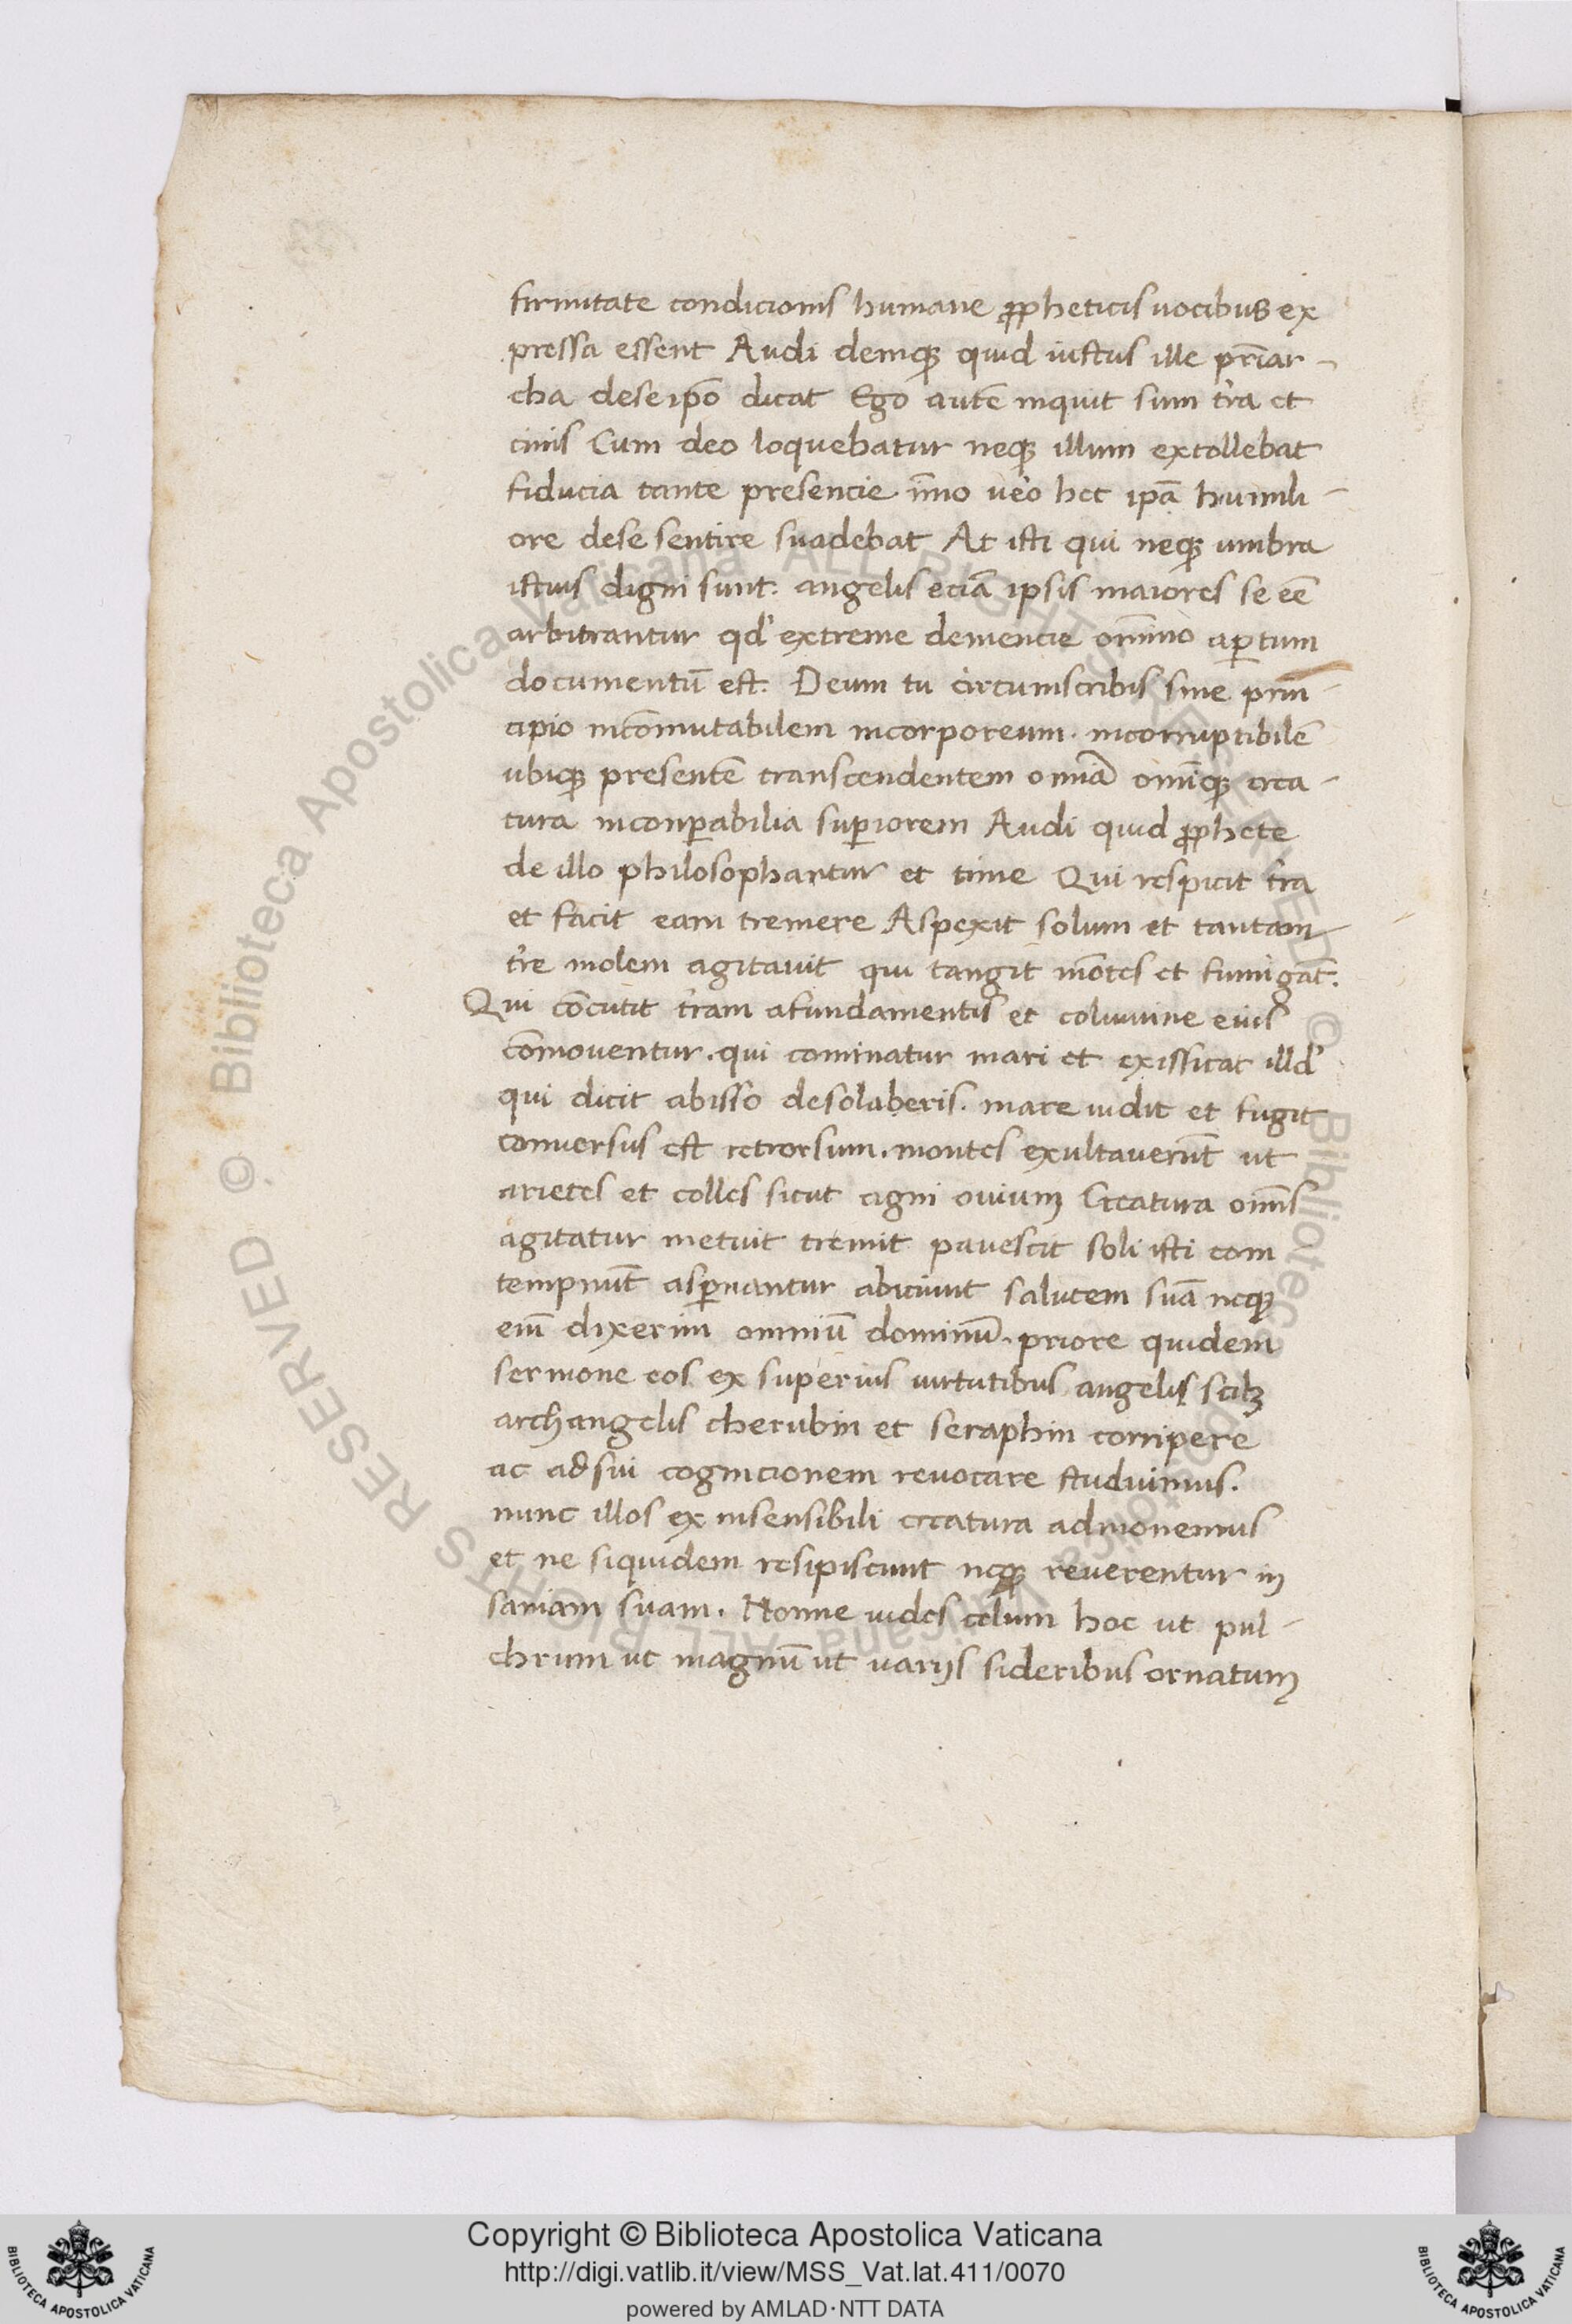 firmitate condicionis humane ꝓpheticis uocibus ex
pressa essent Audi deniqꝫ quid iustus ille pr̄iar-
cha dese ip̄o dicat Ego autē inquit sum tr̄a et
cinis Cum deo loquebatur neqꝫ illum extollebat
fiducia tante presencie īmo uēo hec ip̄a humili-
ore dese sentire suadebat At isti qui neqꝫ umbra
istius digni sunt. angelis eciā ipsis maiores se eē
arbitrantur qd' extreme demencie om̄ino aꝑtum
documentū est. Deum tu circumscribis sine prin-
cipio incōmutabilem incorporeum. incorruptibilē
ubiqꝫ presentē transcendentem omīa om̄iqꝫ crea-
tura inconꝑabilia suꝑiorem Audi quid ꝓphete
de illo philosophantur et time Qui respicit tr̄a
et facit eam tremere Aspexit solum et tantam
tr̄e molem agitauit qui tangit mōtes et fumigāt.
Qui cōcutit tr̄am afundamentis et columne eius
cōmoventur. qui cominatur mari et exissicat illd'
qui dicit abisso desolaberis. mare uidit et fugit
conuersus est retrorsum. montes exultauerūt ut
arietes et colles sicut agni ouium Creatura om̄is
agitatur metuit tremit pauescit soli isti con
tempnūt asꝑnantur abiciunt salutem suā neqꝫ
enī dixerim omniū dominū. priore quidem
sermone eos ex superius uirtutibus angelis scilꝫ
archangelis cherubin et seraphin corripere
ac adsui cognicionem reuocare studuimus.
nunc illos ex insensibili creatura admonemus
et ne siquidem resipiscunt neqꝫ reuerentur in
saniam suam. Nonne uides celum hoc ut pul-
chrum ut magnū ut varijs sideribus ornatum
Copyright © Biblioteca Apostolica Vaticana
http://digi.vatlib.it/view/MSS_Vat.lat.411/0070
powered by AMLAD·NTT DATA
BIBLIOTECA APOSTOLICA VATICANA
BIBLIOTECA APOSTOLICA VATICANA
© Biblioteca Apostolica Vaticana ALL RIGHTS RESERVED © Biblioteca Apostolica Vaticana ALL RIGHTS RESERVED